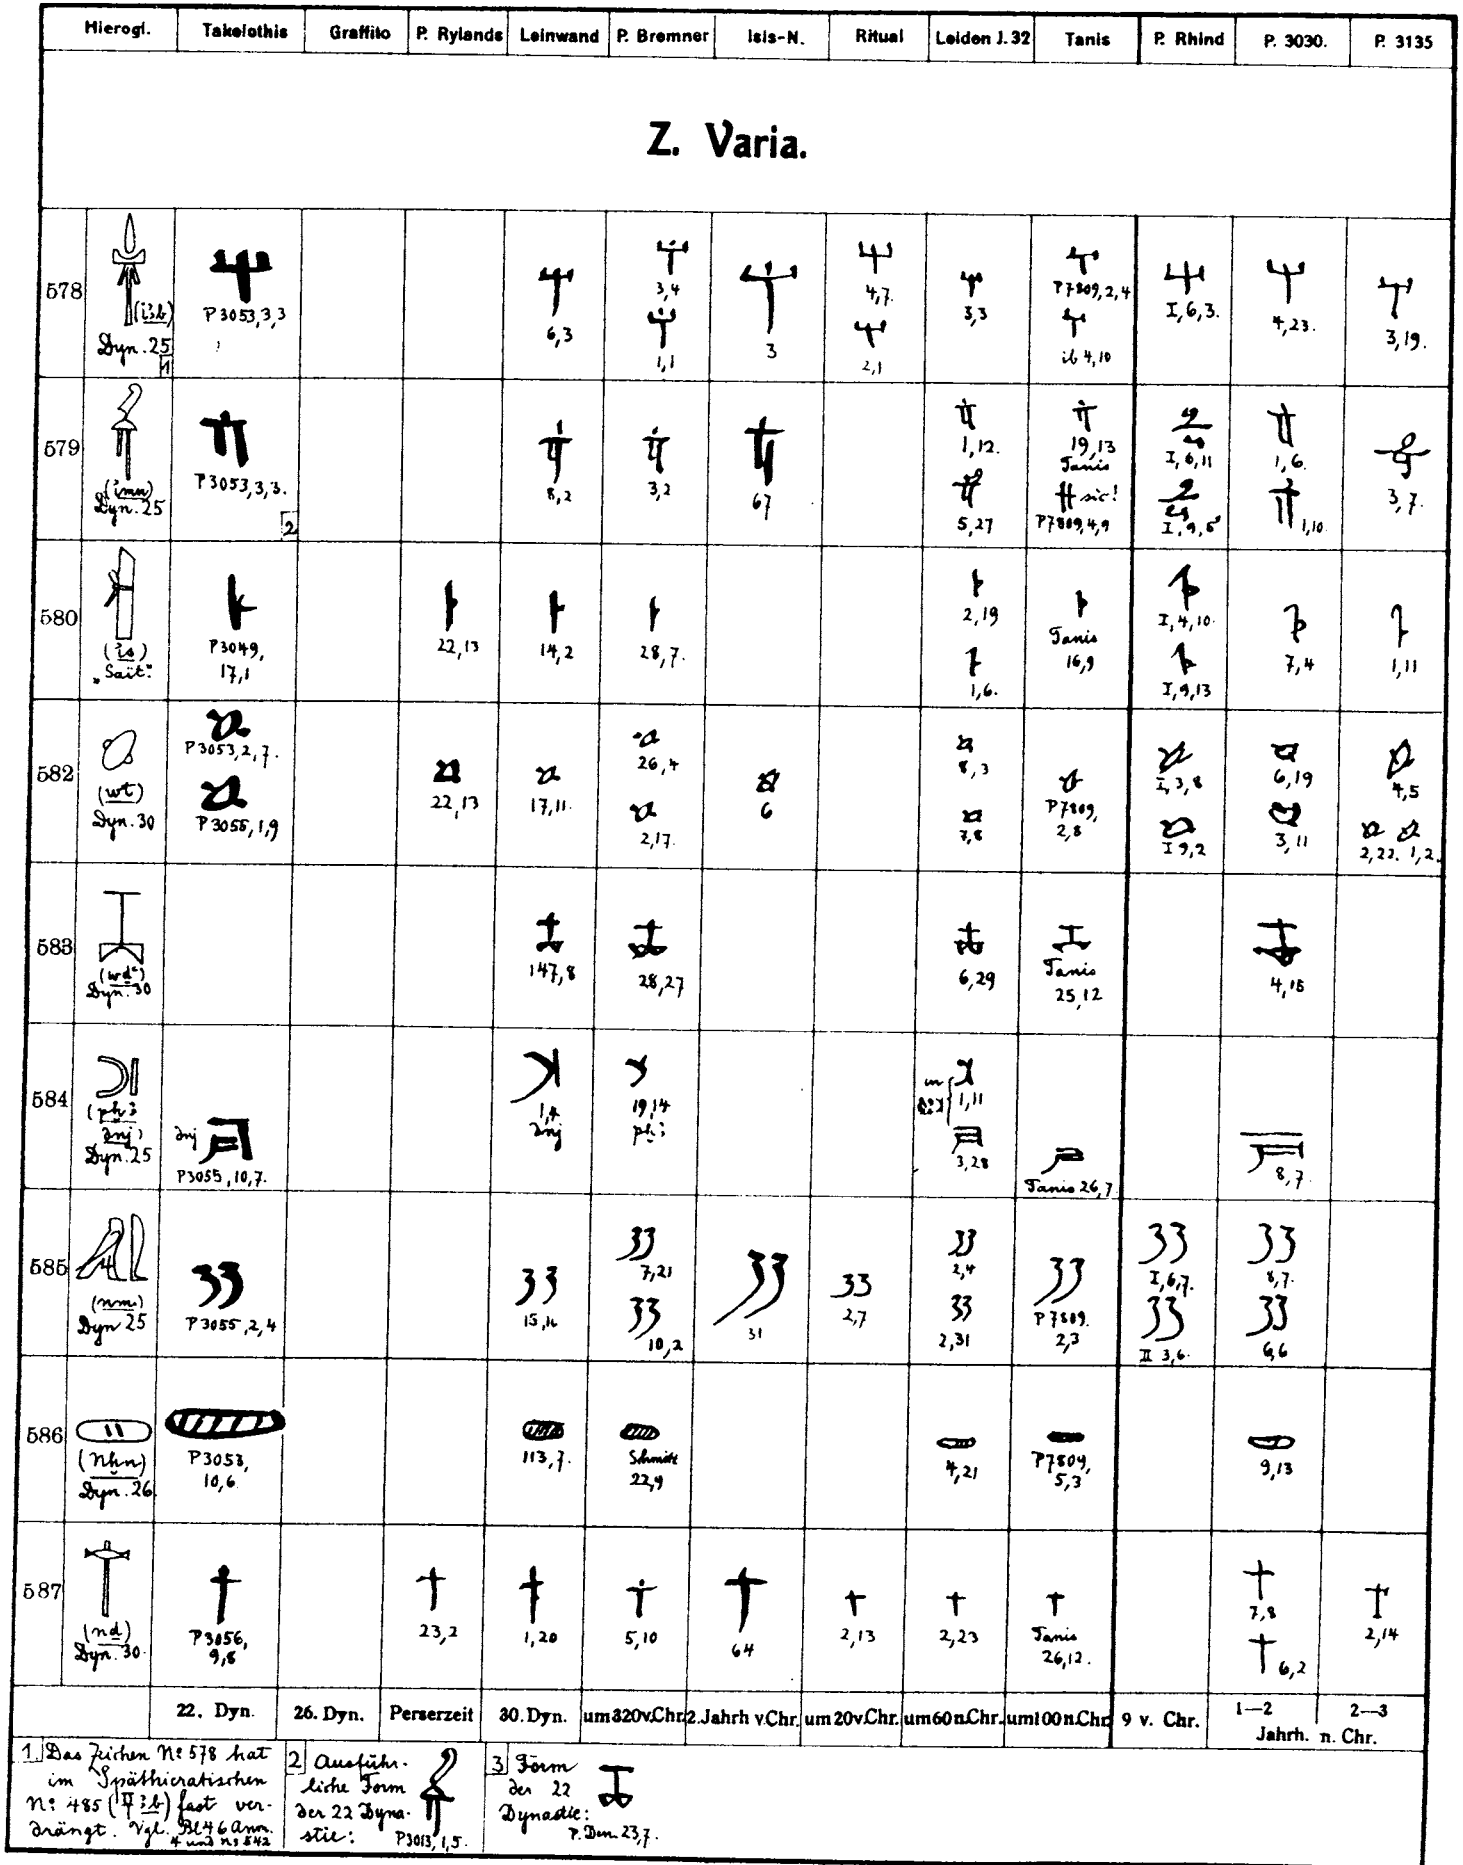 Hierogl. Takelothis Graffito P. Rylands Leinwand P. Bremner Isis-N. Ritual Leiden J. 32 Tanis P. Rhind P. 3030. P. 3135
Z. Varia.
578 (i3b) Dyn. 25 1
P3053,3,3
6,3
3,4
1,1
3
4,7.
2,1
3,3
P7809,2,4
ib 4,10
I,6,3.
4,23.
3,19.
579 (imn) Dyn. 25
P3053,3,3. 2
8,2
3,2
67
1,12.
5,27
19,13 Tanis
sic! P7809,4,9
I,6,11
I,9,5
1,6.
1,10.
3,7.
580 (is) „Sait."
P3049, 17,1
22,13
14,2
28,7.
2,19
1,6.
Tanis 16,9
I,4,10.
I,9,13
7,4
1,11
582 (wt) Dyn. 30
P3053,2,7.
P3055,1,9
22,13
17,11.
26,4
2,17.
6
8,3
7,8
P7809, 2,8
I,3,8
I 9,2
6,19
3,11
4,5
2,22. 1,2.
583 (wdꜥ) Dyn. 30
147,8
28,27
6,29
Tanis 25,12
4,15
584 (pḫ3 dnj) Dyn. 25
dnj P3055,10,7.
1,4 dnj
19,14 pḫ3
in
1,11
3,28
Tanis 26,7
8,7.
585 (nm) Dyn 25
P3055,2,4
15,16
7,21
10,2
31
2,7
2,4
2,31
P7809. 2,3
I,6,7.
II 3,6.
8,7.
6,6
586 (Nḫn) Dyn. 26
P3053, 10,6
113,7.
Schmitt 22,9
4,21
P7809, 5,3
9,13
587 (nḏ) Dyn. 30
P3056, 9,8
23,2
1,20
5,10
64
2,13
2,23
Tanis 26,12.
7,8
6,2
2,14
22. Dyn. 26. Dyn. Perserzeit 30. Dyn. um 320 v. Chr. 2. Jahrh v. Chr. um 20 v. Chr. um 60 n. Chr. um 100 n. Chr. 9 v. Chr. 1—2 2—3
Jahrh. n. Chr.
1 Das Zeichen No 578 hat
im Späthieratischen
No 485 (3b) fast ver-
drängt. Vgl. Bl 46 Anm.
4 und No 542
2 Ausführ-
liche Form
der 22 Dyna-
stie: P3013,1,5.
3 Form
der 22
Dynastie:
P. Den. 23,7.